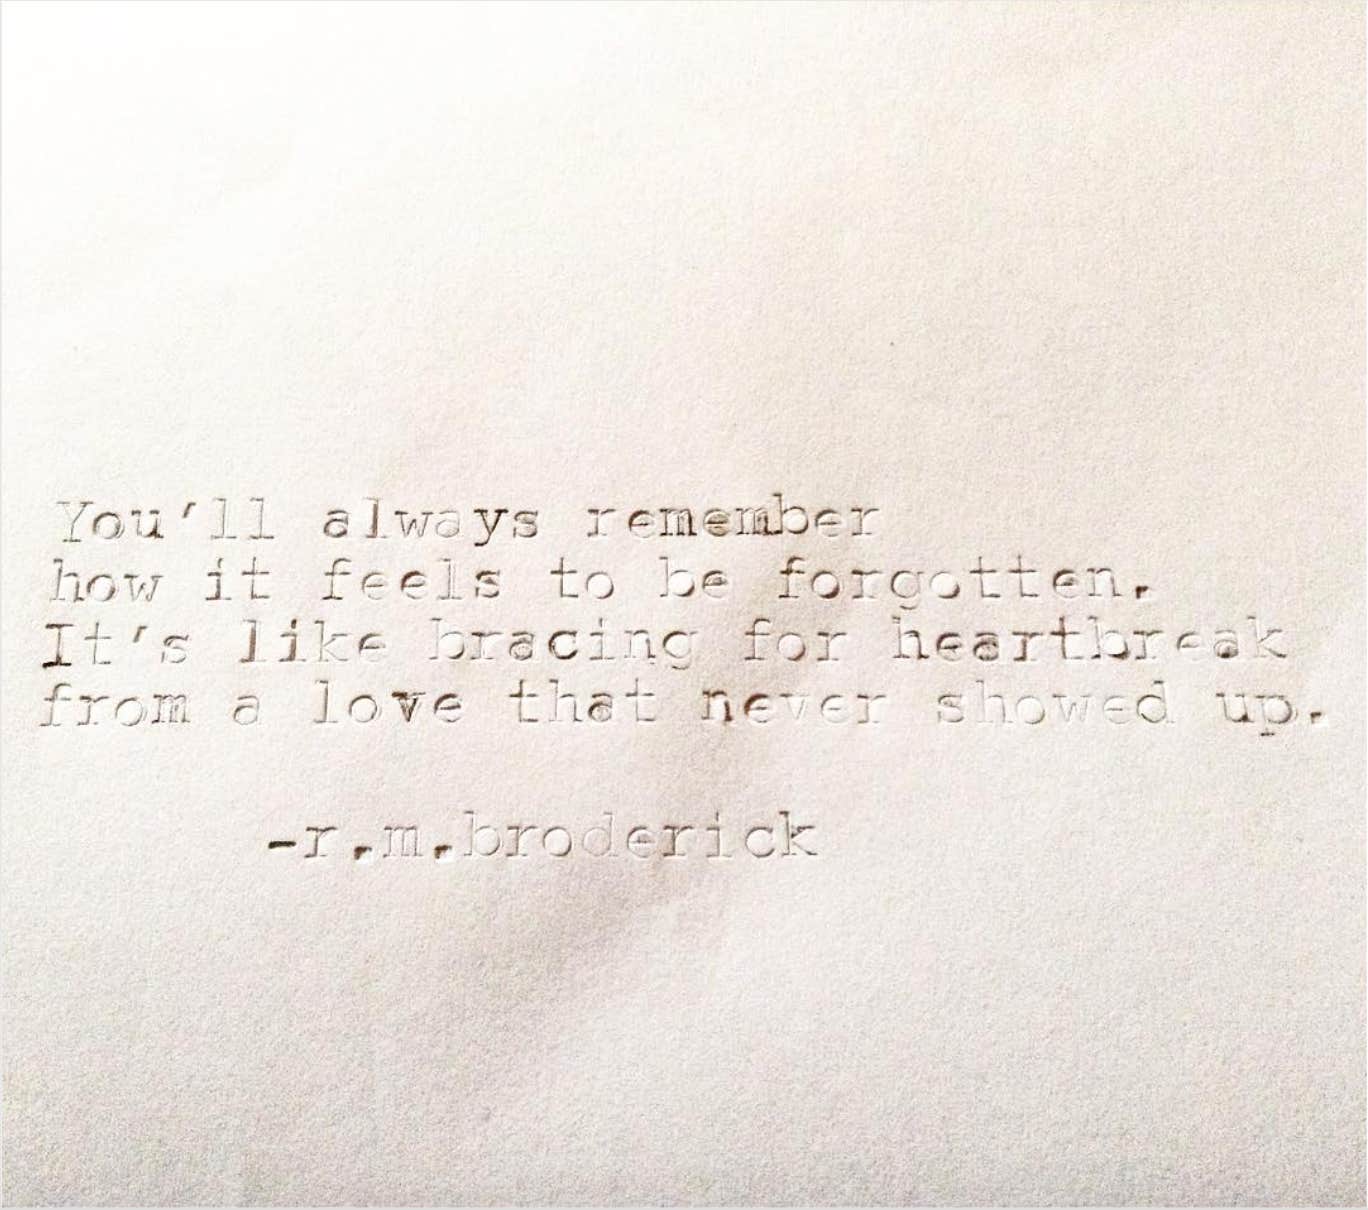 You'll always remember
how it feels to be forgotten.
It's like bracing for heartbreak
from a love that never showed up.
-r.m.broderick